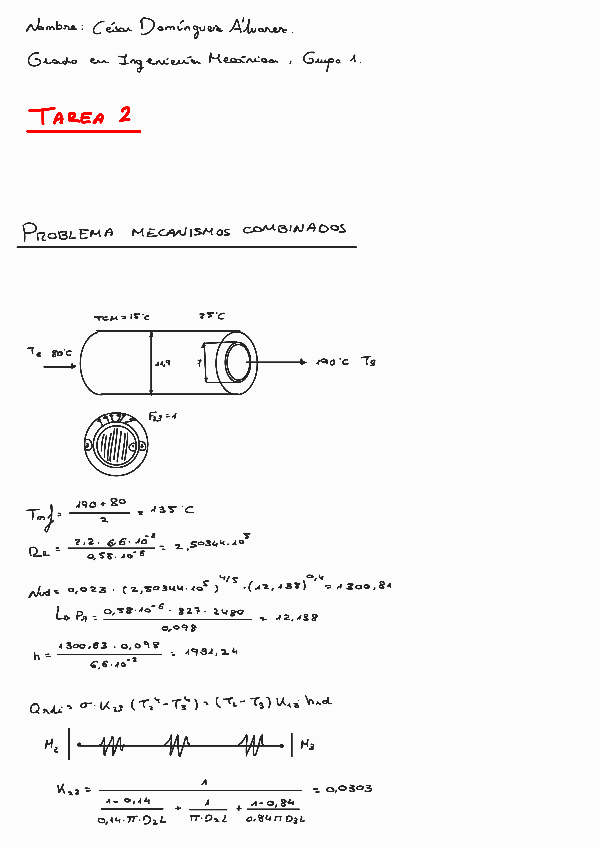 Nombre: César Domínguez Álvarez.
Grado en Ingeniería Mecánica, Grupo 1.
TAREA 2
PROBLEMA MECANISMOS COMBINADOS
TCM = 15°C 75°C
Te 80°C
11,9
7
190°C Ts
F23 = 1
Tmf = (190 + 80)/2 = 135°C
Re = (2,2 · 6,6 · 10^-2)/(0,58 · 10^-6) = 2,50344 · 10^5
Nud = 0,023 · (2,50344 · 10^5)^4/5 · (12,138)^0,4 = 1300,81
↳ Pr = (0,58 · 10^-6 · 827 · 2480)/0,098 = 12,138
h = (1300,83 · 0,098)/(6,6 · 10^-2) = 1931,24
Qrad = σ · K23 (T2^4 - T3^4) = (T2 - T3) K23 hrad
M2 M3
K23 = 1/((1-0,14)/(0,14 · π · D2L) + 1/(π · D2L) + (1-0,84)/(0,84 π D3L)) = 0,0303